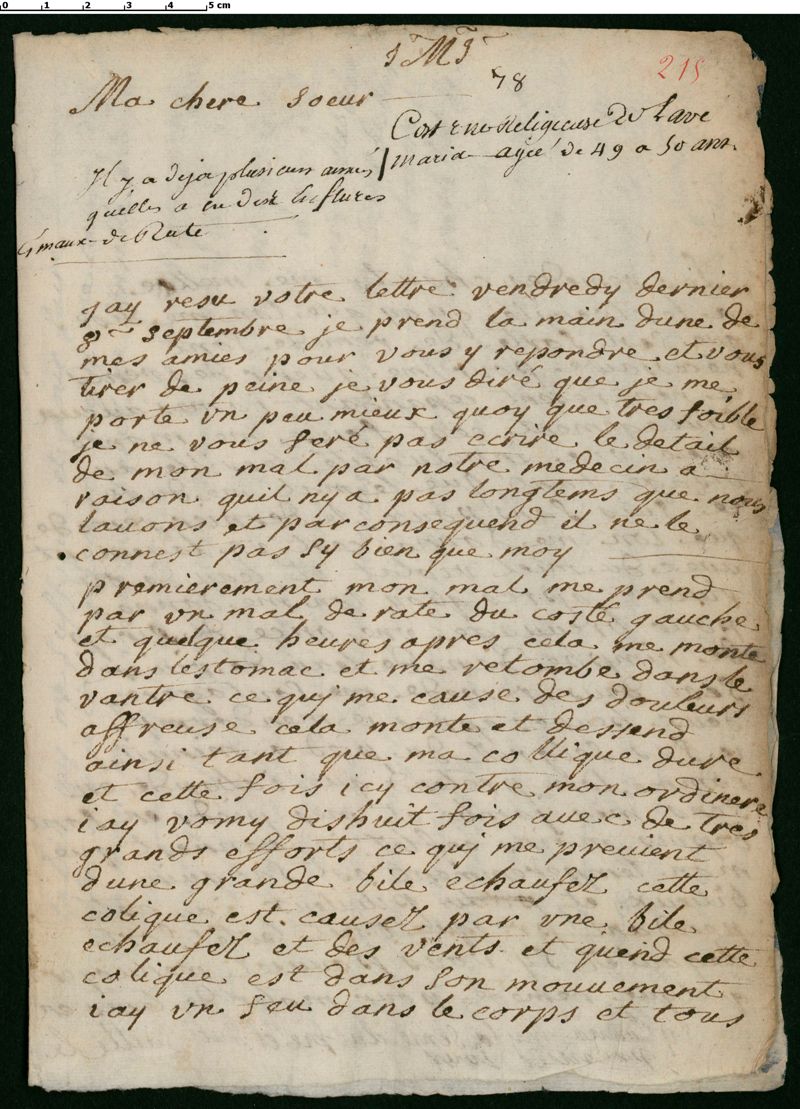 0 1 2 3 4 5 cm
J M J
215
78
Ma chere soeur
C'est une Religieuse de Lave
maria agée de 49 a 50 ans.
Il y a deja plusieurs années
quelle a eu des Enflures
& maux de Rate
jay resu votre lettre vendredy dernier
septembre je prend la main dune de
mes amies pour vous y repondre et vous
tirer de peine je vous diré que je me
porte vn peu mieux quoy que tres foible
je ne vous feré pas ecrire le detail
de mon mal par notre medecin a
raison quil nya pas longtems que nous
lauons et par consequend il ne le
connest pas sy bien que moy
premierement mon mal me prend
par vn mal de rate du costé gauche
et quelque heures apres cela me monte
dans lestomac et me retombe dans le
vantre ce quj me cause des douleurs
affreuse cela monte et dessend
ainsi tant que ma collique dure
et cette fois icy contre mon ordinere
iay vomy dishuit fois auec de tres
grands efforts ce quj me preuient
dune grande bile echaufez cette
colique est causez par vne bile
echaufez et des vents et quend cette
colique est dans son mouuement
iay vn feu dans le corps et tous